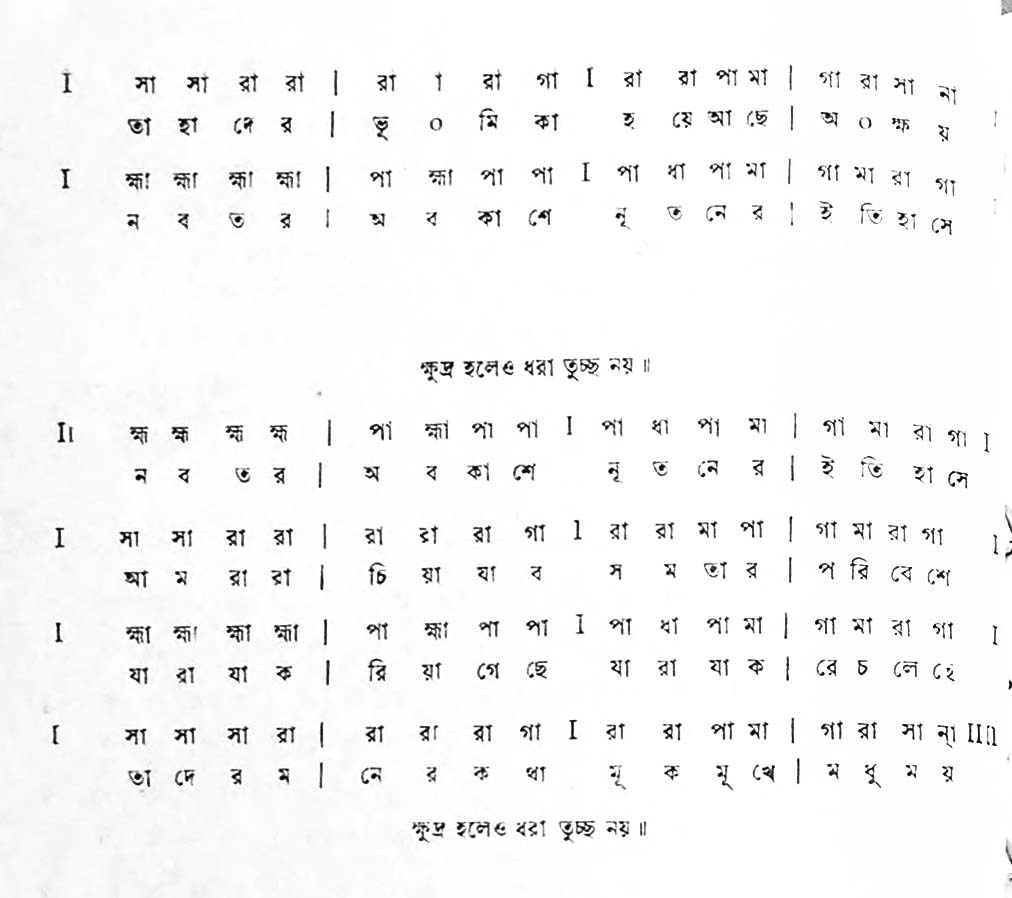 I সা সা রা রা | রা া রা গা I রা রা পা মা | গা রা সা না
তা হা দে র | ভূ ০ মি কা হ য়ে আ ছে | অ ০ ক্ষ য় I
I হ্মা হ্মা হ্মা হ্মা | পা হ্মা পা পা I পা ধা পা মা | গা মা রা গা
ন ব ত র | অ ব কা শে নূ ত নে র | ই তি হা সে
ক্ষুদ্র হলেও ধরা তুচ্ছ নয় ॥
II হ্ম হ্ম হ্ম হ্ম | পা হ্মা পা পা I পা ধা পা মা | গা মা রা গা I
ন ব ত র | অ ব কা শে নূ ত নে র | ই তি হা সে
I সা সা রা রা | রা রা রা গা I রা রা মা পা | গা মা রা গা I
আ ম রা রা | চি য়া যা ব স ম তা র | প রি বে শে
I হ্মা হ্মা হ্মা হ্মা | পা হ্মা পা পা I পা ধা পা মা | গা মা রা গা I
যা রা যা ক | রি য়া গে ছে যা রা যা ক | রে চ লে ছে
I সা সা সা রা | রা রা রা গা I রা রা পা মা | গা রা সা ন্‌া III
তা দে র ম | নে র ক থা মূ ক মূ খে | ম ধু ম য়
ক্ষুদ্র হলেও ধরা তুচ্ছ নয় ॥